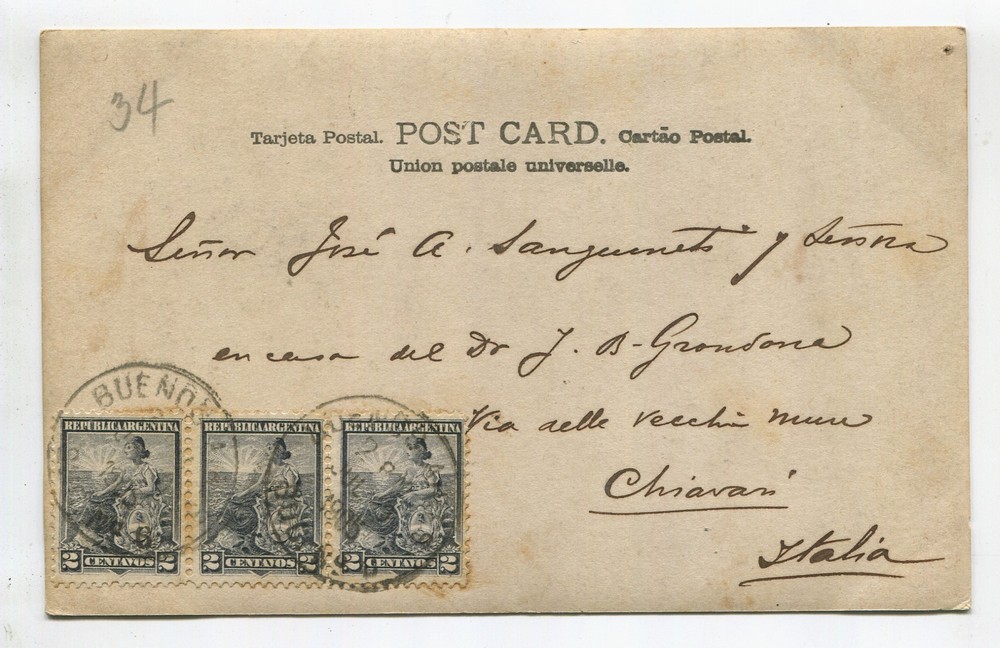 34
Tarjeta Postal. POST CARD. Cartão Postal.
Union postale universelle.
Señor José A. Sanguineti y Señora
en casa del Dr J. B. Grondona
Via delle Vecchie Mura
Chiavari
Italia
BUENOS
REPUBLICA ARGENTINA REPUBLICA ARGENTINA REPUBLICA ARGENTINA
2 CENTAVOS 2 2 CENTAVOS 2 2 CENTAVOS 2